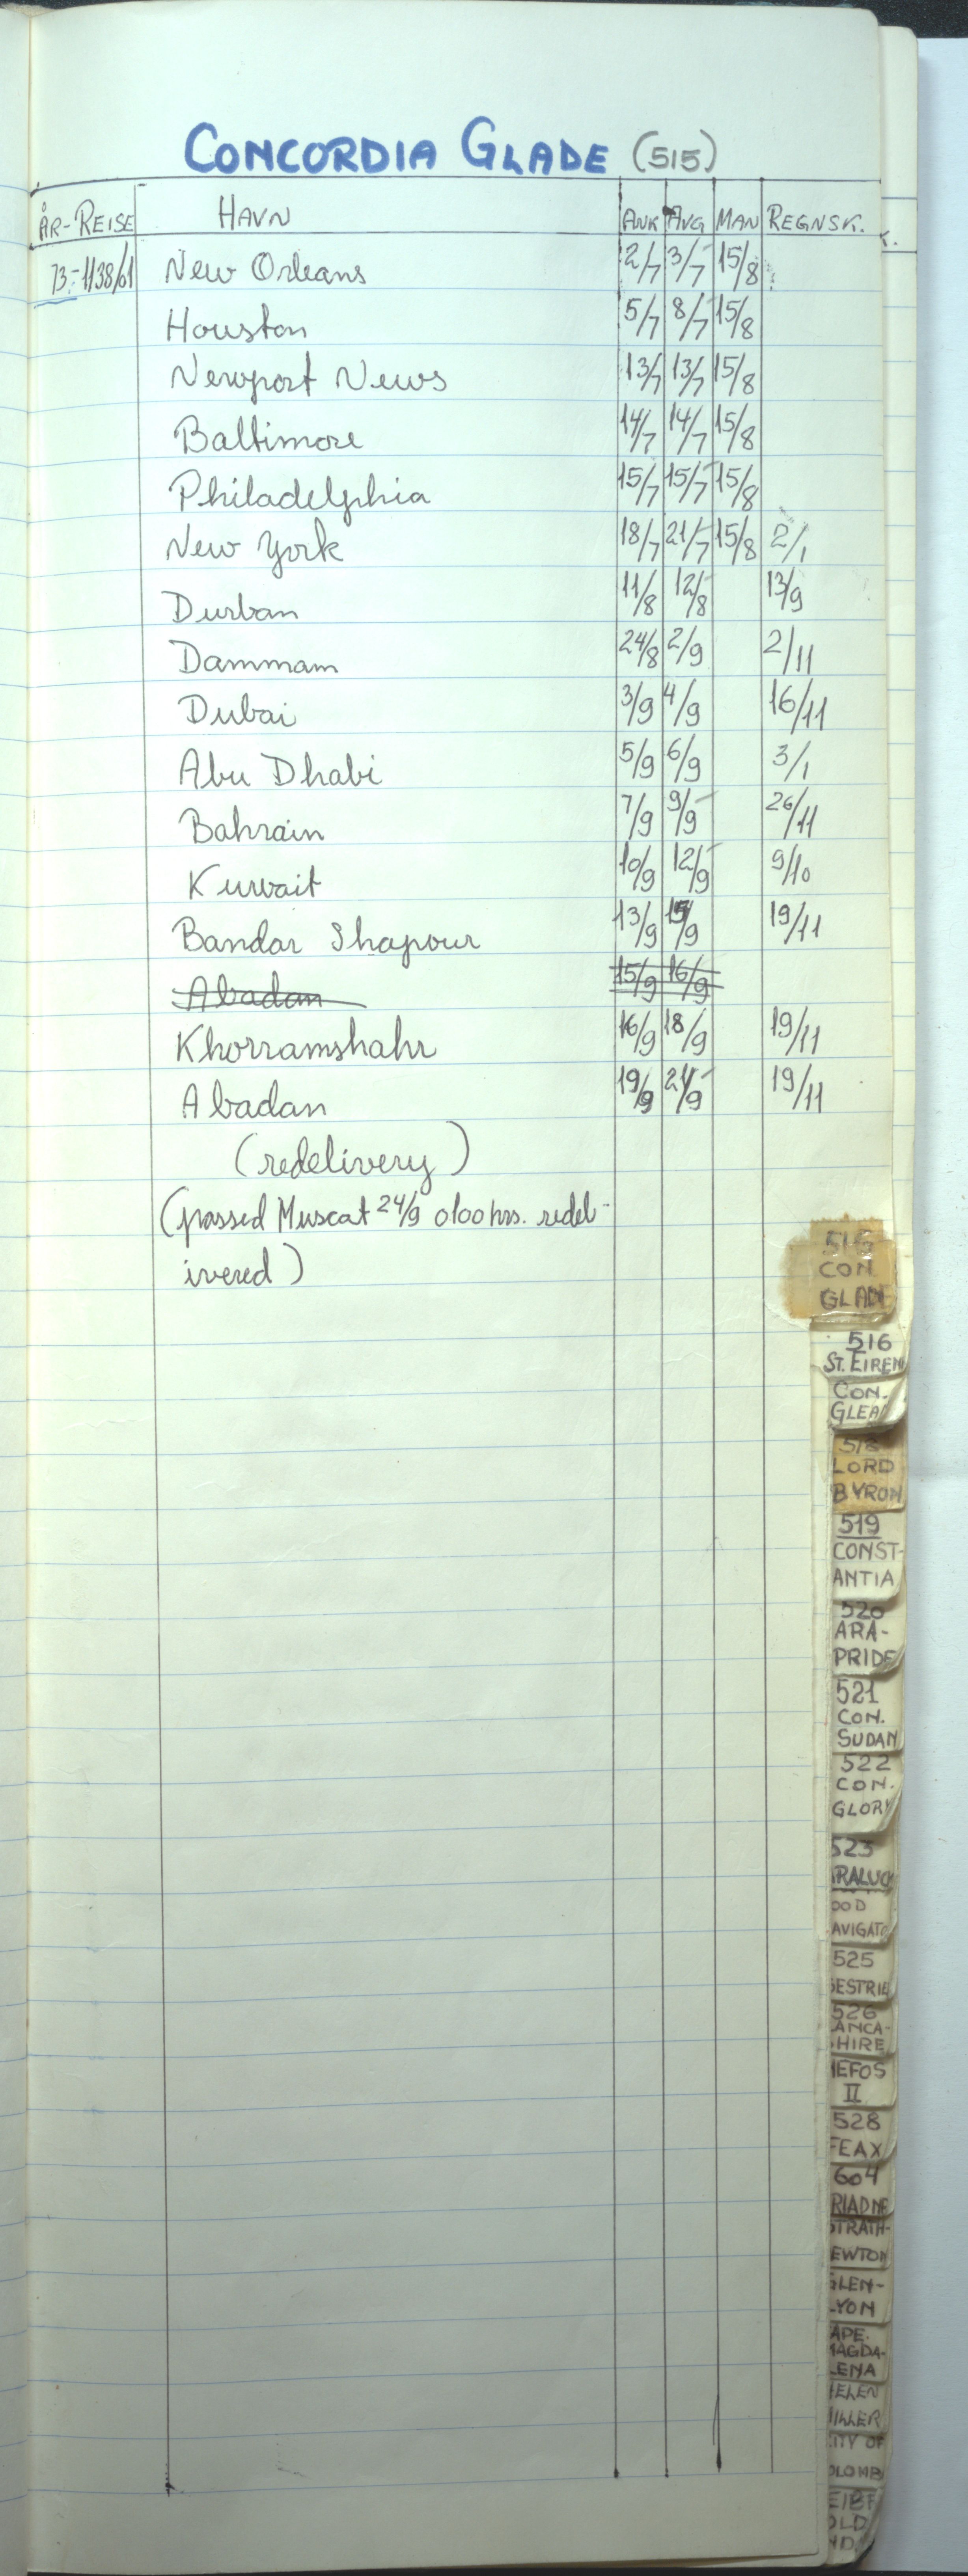 CONCORDIA GLADE (515)
ÅR-REISE HAVN ANK AVG MAN REGNSK.
K.
73.-1138/01 New Orleans 2/7 3/7 15/8
Houston 5/7 8/7 15/8
Newport News 13/7 13/7 15/8
Baltimore 14/7 14/7 15/8
Philadelphia 15/7 15/7 15/8
New York 18/7 21/7 15/8 2/1
Durban 11/8 12/8 13/9
Dammam 24/8 2/9 2/11
Dubai 3/9 4/9 16/11
Abu Dhabi 5/9 6/9 3/1
Bahrain 7/9 9/9 26/11
Kuwait 10/9 12/9 9/10
Bandar Shapour 13/9 15/9 19/11
Abadan 15/9 16/9
Khorramshahr 16/9 18/9 19/11
Abadan 19/9 21/9 19/11
(redelivery)
(passed Muscat 24/9 0100 hrs. redel-
ivered)
515
CON.
GLADE
516
ST. EIREN
CON.
GLEA
518
LORD
BYRON
519
CONST-
ANTIA
520
ARA-
PRIDE
521
CON.
SUDAN
522
CON.
GLORY
523
RALUCK
OOD
AVIGATO
525
SESTRIE
526
LANCA-
HIRE
IEFOS
II
528
FEAX
604
RIADNE
STRATH-
EWTON
GLEN-
LYON
APE.
MAGDA-
LENA
HELEN
MILLER
CITY OF
OLOMB
EIBF
OLD
ND